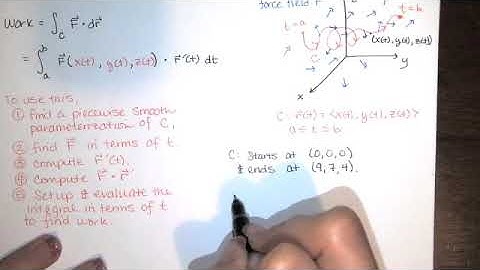 Work = ∫_C F⃗ · dr⃗
= ∫_a^b F⃗(x(t), y(t), z(t)) · r⃗'(t) dt
To use this,
① find a piecewise smooth
parameterization of C,
② find F⃗ in terms of t.
③ compute r⃗'(t).
④ compute F⃗ · r⃗'
⑤ Set up & evaluate the
integral in terms of t
to find work.
force field F⃗
t=a
t=b
C
(x(t), y(t), z(t))
x
y
C: r⃗(t) = <x(t), y(t), z(t)>
a ≤ t ≤ b
C: Starts at (0,0,0)
& ends at (9,7,4).